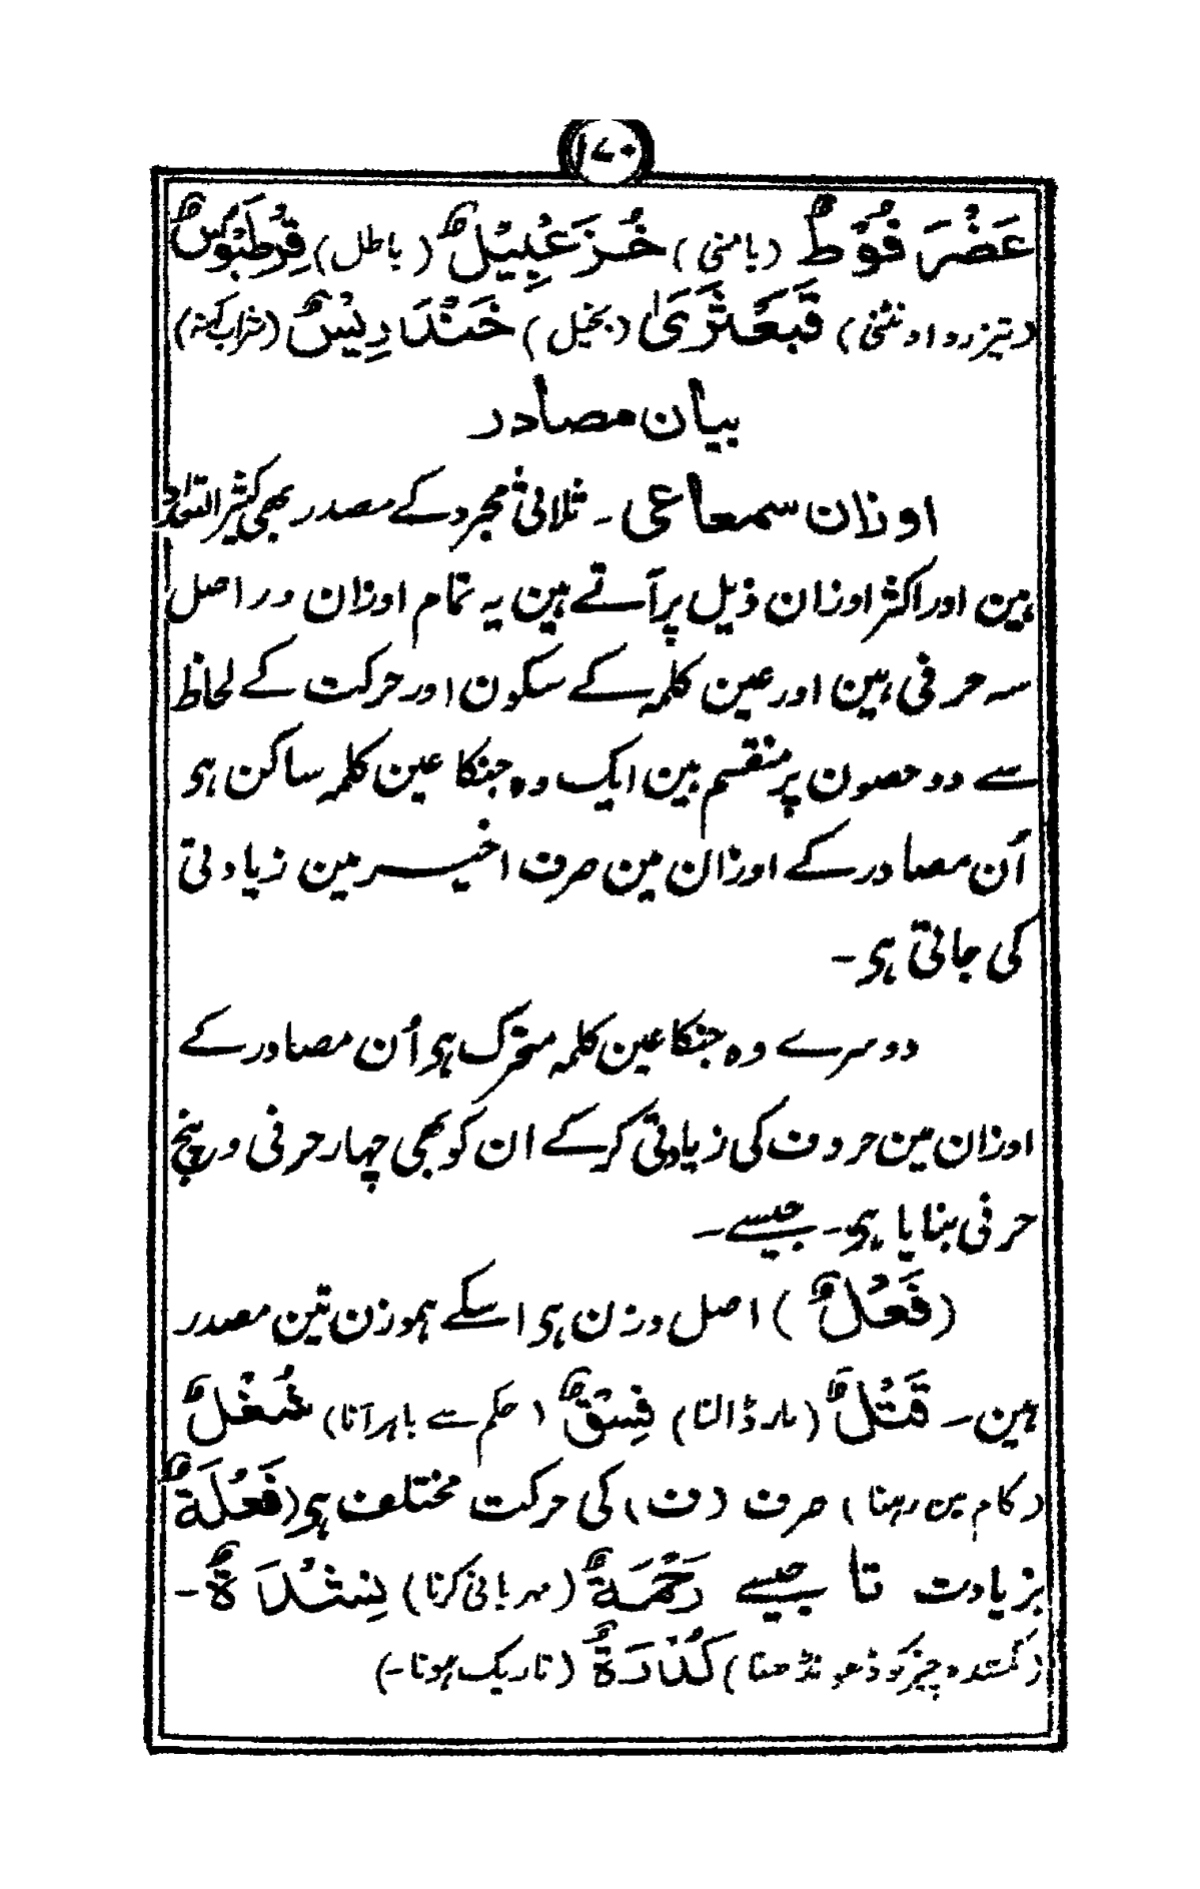 ۱۷۰
عَضْرَ فُوْطٌ (بامنی) خُزَعْبِیْلٌ (باطل) قِرْطَبُوْسٌ
(تیزرو اونٹنی) قَبَعْثَرَیٰ (بخیل) خَنْدَرِیْسٌ (شراب کہنہ)
بیان مصادر
اوزان سمعاعی ۔ ثلاثی مجرد کے مصدر بھی کثیر التعداد
ہین اور اکثر اوزان ذیل پر آتے ہین یہ تمام اوزان در اصل
سہ حرفی ہین اور عین کلمہ کے سکون اور حرکت کے لحاظ
سے دو حصون پر منقسم ہین ایک وہ جنکا عین کلمہ ساکن ہو
اُن مصادر کے اوزان مین صرف اخیر مین زیادتی
کی جاتی ہو ۔
دوسرے وہ جنکا عین کلمہ متحرک ہو اُن مصادر کے
اوزان مین حروف کی زیادتی کرکے ان کو بھی چہار حرفی و پنج
حرفی بنایا ہو ۔ جیسے ۔
(فَعْلٌ) اصل وزن ہو اسکے ہموزن تین مصدر
ہین ۔ قَتْلٌ (مار ڈالنا) فِسْقٌ (حکم سے باہر آنا) شُغْلٌ
(کام مین رہنا) حرف (ف) کی حرکت مختلف ہو (فَعْلَةٌ)
بزیادت تا جیسے رَحْمَةٌ (مہربانی کرنا) نِشْدَةٌ ۔
(گمشدہ چیز کو ڈھونڈھنا) کُدْرَةٌ (تاریک ہونا ۔)